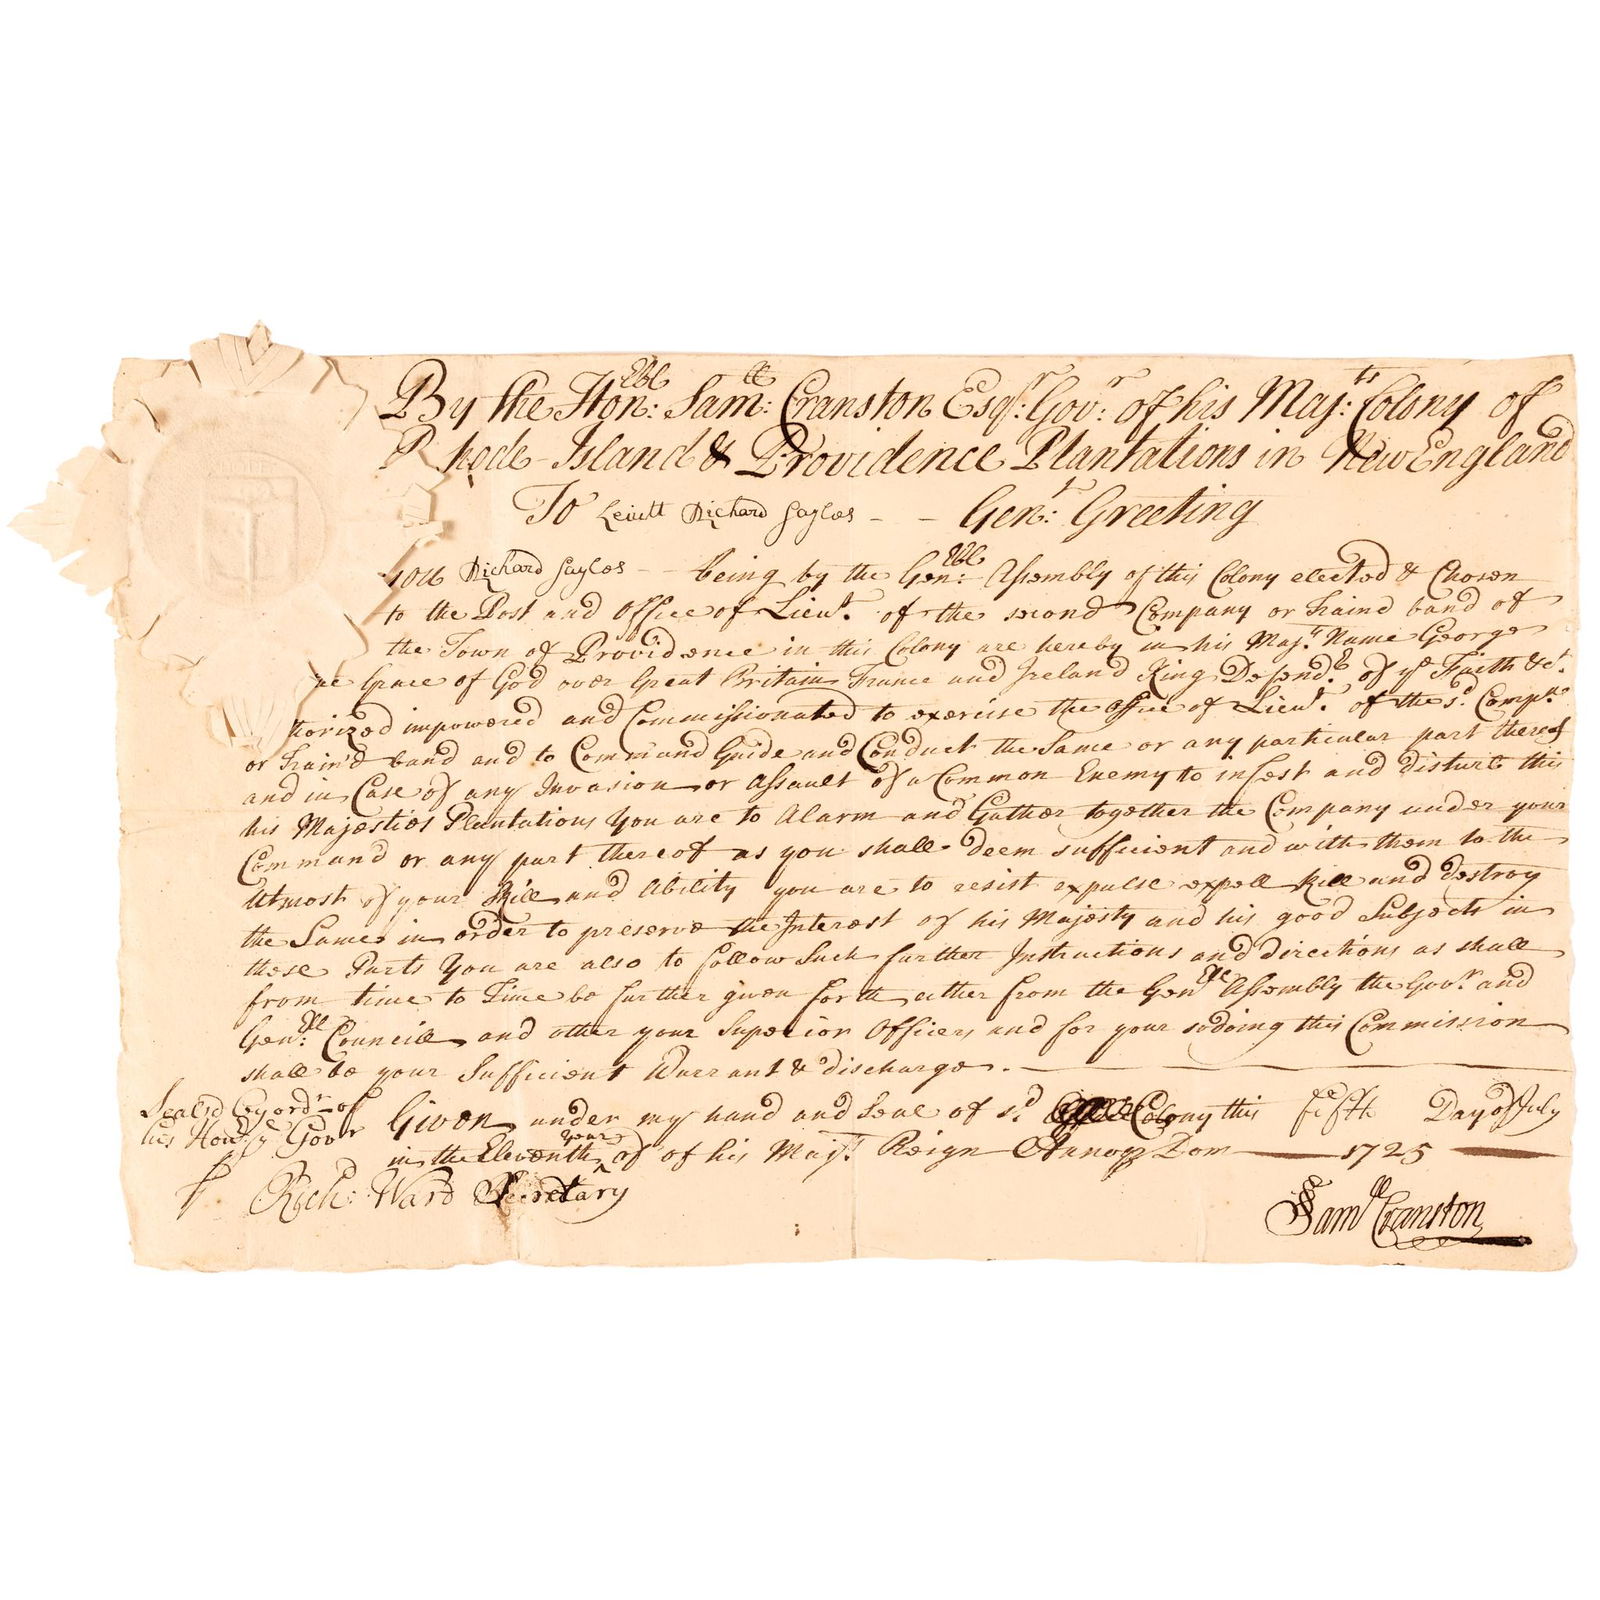 By the Hon:ble Sam:ll Cranston Esqr: Govr: of his Maj:ts Colony of
Rhode-Island & Providence Plantations in New England
To Leiutt Richard Sayles - - Gen:t Greeting
You Richard Sayles - - being by the Gen:ble Assembly of this Colony elected & Chosen
to the Post and Office of Lieut. of the second Company or Traind band of
the Town of Providence in this Colony are hereby in his Majts Name George
he Grace of God over Great Britain France and Ireland King Defendr of ye Faith &ct.
horized impowered and Commissionated to exercise the Office of Lieut. of the sd. Compne
or Train'd band and to Command Guide and Conduct the Same or any particular part thereof
and in Case of any Invasion or Assault of a Common Enemy to infest and disturb this
his Majesties Plantations You are to Alarm and Gather together the Company under your
Command or any part thereof as you shall deem sufficient and with them to the
Utmost of your Skill and Ability you are to resist expulse expell kill and destroy
the Same in order to preserve the Interest of his Majesty and his good Subjects in
these Parts You are also to follow Such further Instructions and directions as shall
from time to Time be further given forth either from the Genlle Assembly the Govr. and
Gen:lle Councill and other your Superior Officers and for your so doing this Commission
shall be your Sufficient Warrant & discharge.
Seal'd by ordr of Given under my hand and Seal of sd. Colony this fifth Day of July
his Honr ye Govr in the Eleventh year of of his Majts. Reign Annoq Dom 1725
Rich: Ward Secretary
Samll Cranston